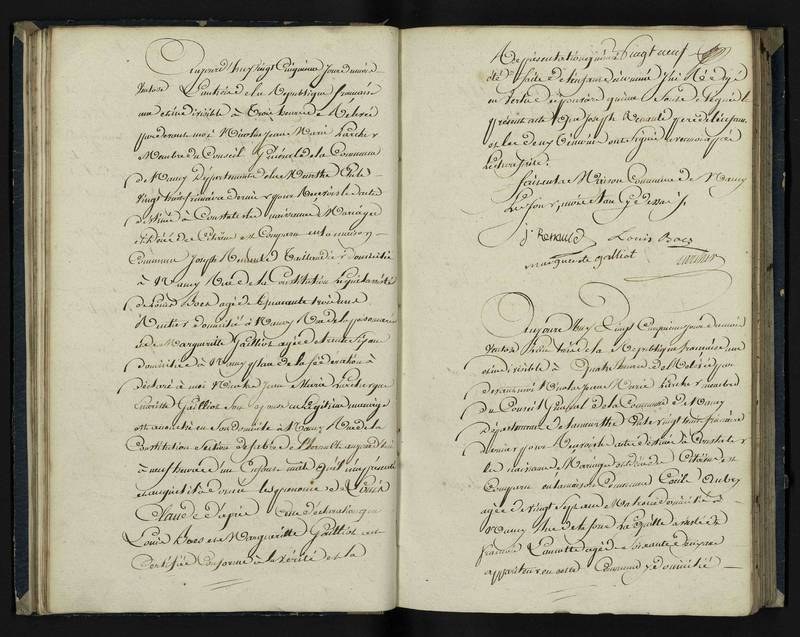 aujourd'huy vingt Cinquieme jour du mois de
ventose l'an trois de la République française
une et indivisible à trois heures de Relevée
pardevant moi Nicolas Jean Marie Larcher
Membre du Conseil Général de la Commune
de Nancy Departement de la Meurthe élu le
vingt trois frimaire dernier pour Recevoir les actes
destinés à Constater les naissances Mariages
et décès des Citoiens est Comparu en la maison
Commune Joseph Renauld domicilié
à Nancy Rue de la Constitution lequel assisté
de Louis Boes agé de quarante trois ans
Rentier domicilié à Nancy Rue de la
et de Marguerite Gailliot agée de trente six ans
domiciliée à Nancy place de la fédération à
déclaré à moi Nicolas Jean Marie Larcher que
Gailliot son epouse en légitime mariage
est accouchée en son domicile à Nancy Rue de la
Constitution Section aujourd'hui
à neuf heures d'un Enfant mâle qu'il m'a présenté
et auquel il a donné les prenoms de Louis
Claude D'après Cette déclaration que
Louis Boes et Marguerite Gailliot ont
Certifiée Conforme à la vérité et la
Représentation qui m'a Vingt neuf
été faite de l'enfant dénommé j'ai Rédigé
en vertu des pouvoirs qui me Sont délégués le
présent acte que Joseph Renauld pere de l'enfant
et les deux témoins ont signé avec moi après
lecture faite.
fait en la Maison Commune de Nancy
les jour, mois et an que dessus
J Renauld Louis Boes
marguerite galliot Larcher
aujourd'huy vingt Cinquieme jour du mois
ventose l'an trois de la République française une
et indivisible à quatre heures de Relevée par
devant moi Nicolas Jean Marie Larcher membre
du Conseil Général de la Commune de Nancy
département de la meurthe élu le vingt trois frimaire
dernier pour Recevoir les actes destinés à Constater
les naissances Mariages et décès des Citoiens est
Comparue en la maison Commune Aubry
agée de vingt sept ans Matrone domiciliée à
Nancy Rue assistée de
françois Lanette agé de soixante deux ans
appariteur en cette Commune y domicilié